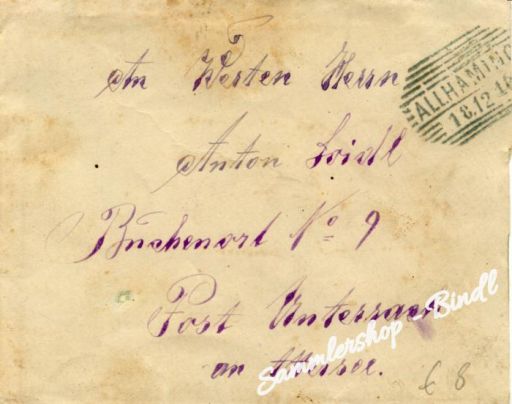 An Werten Herrn
ALLHAMING
18.12.46
Anton Loidl
Buchenort No 9
Post Unterach
am Attersee.
Sammlershop - Bindl
€ 8